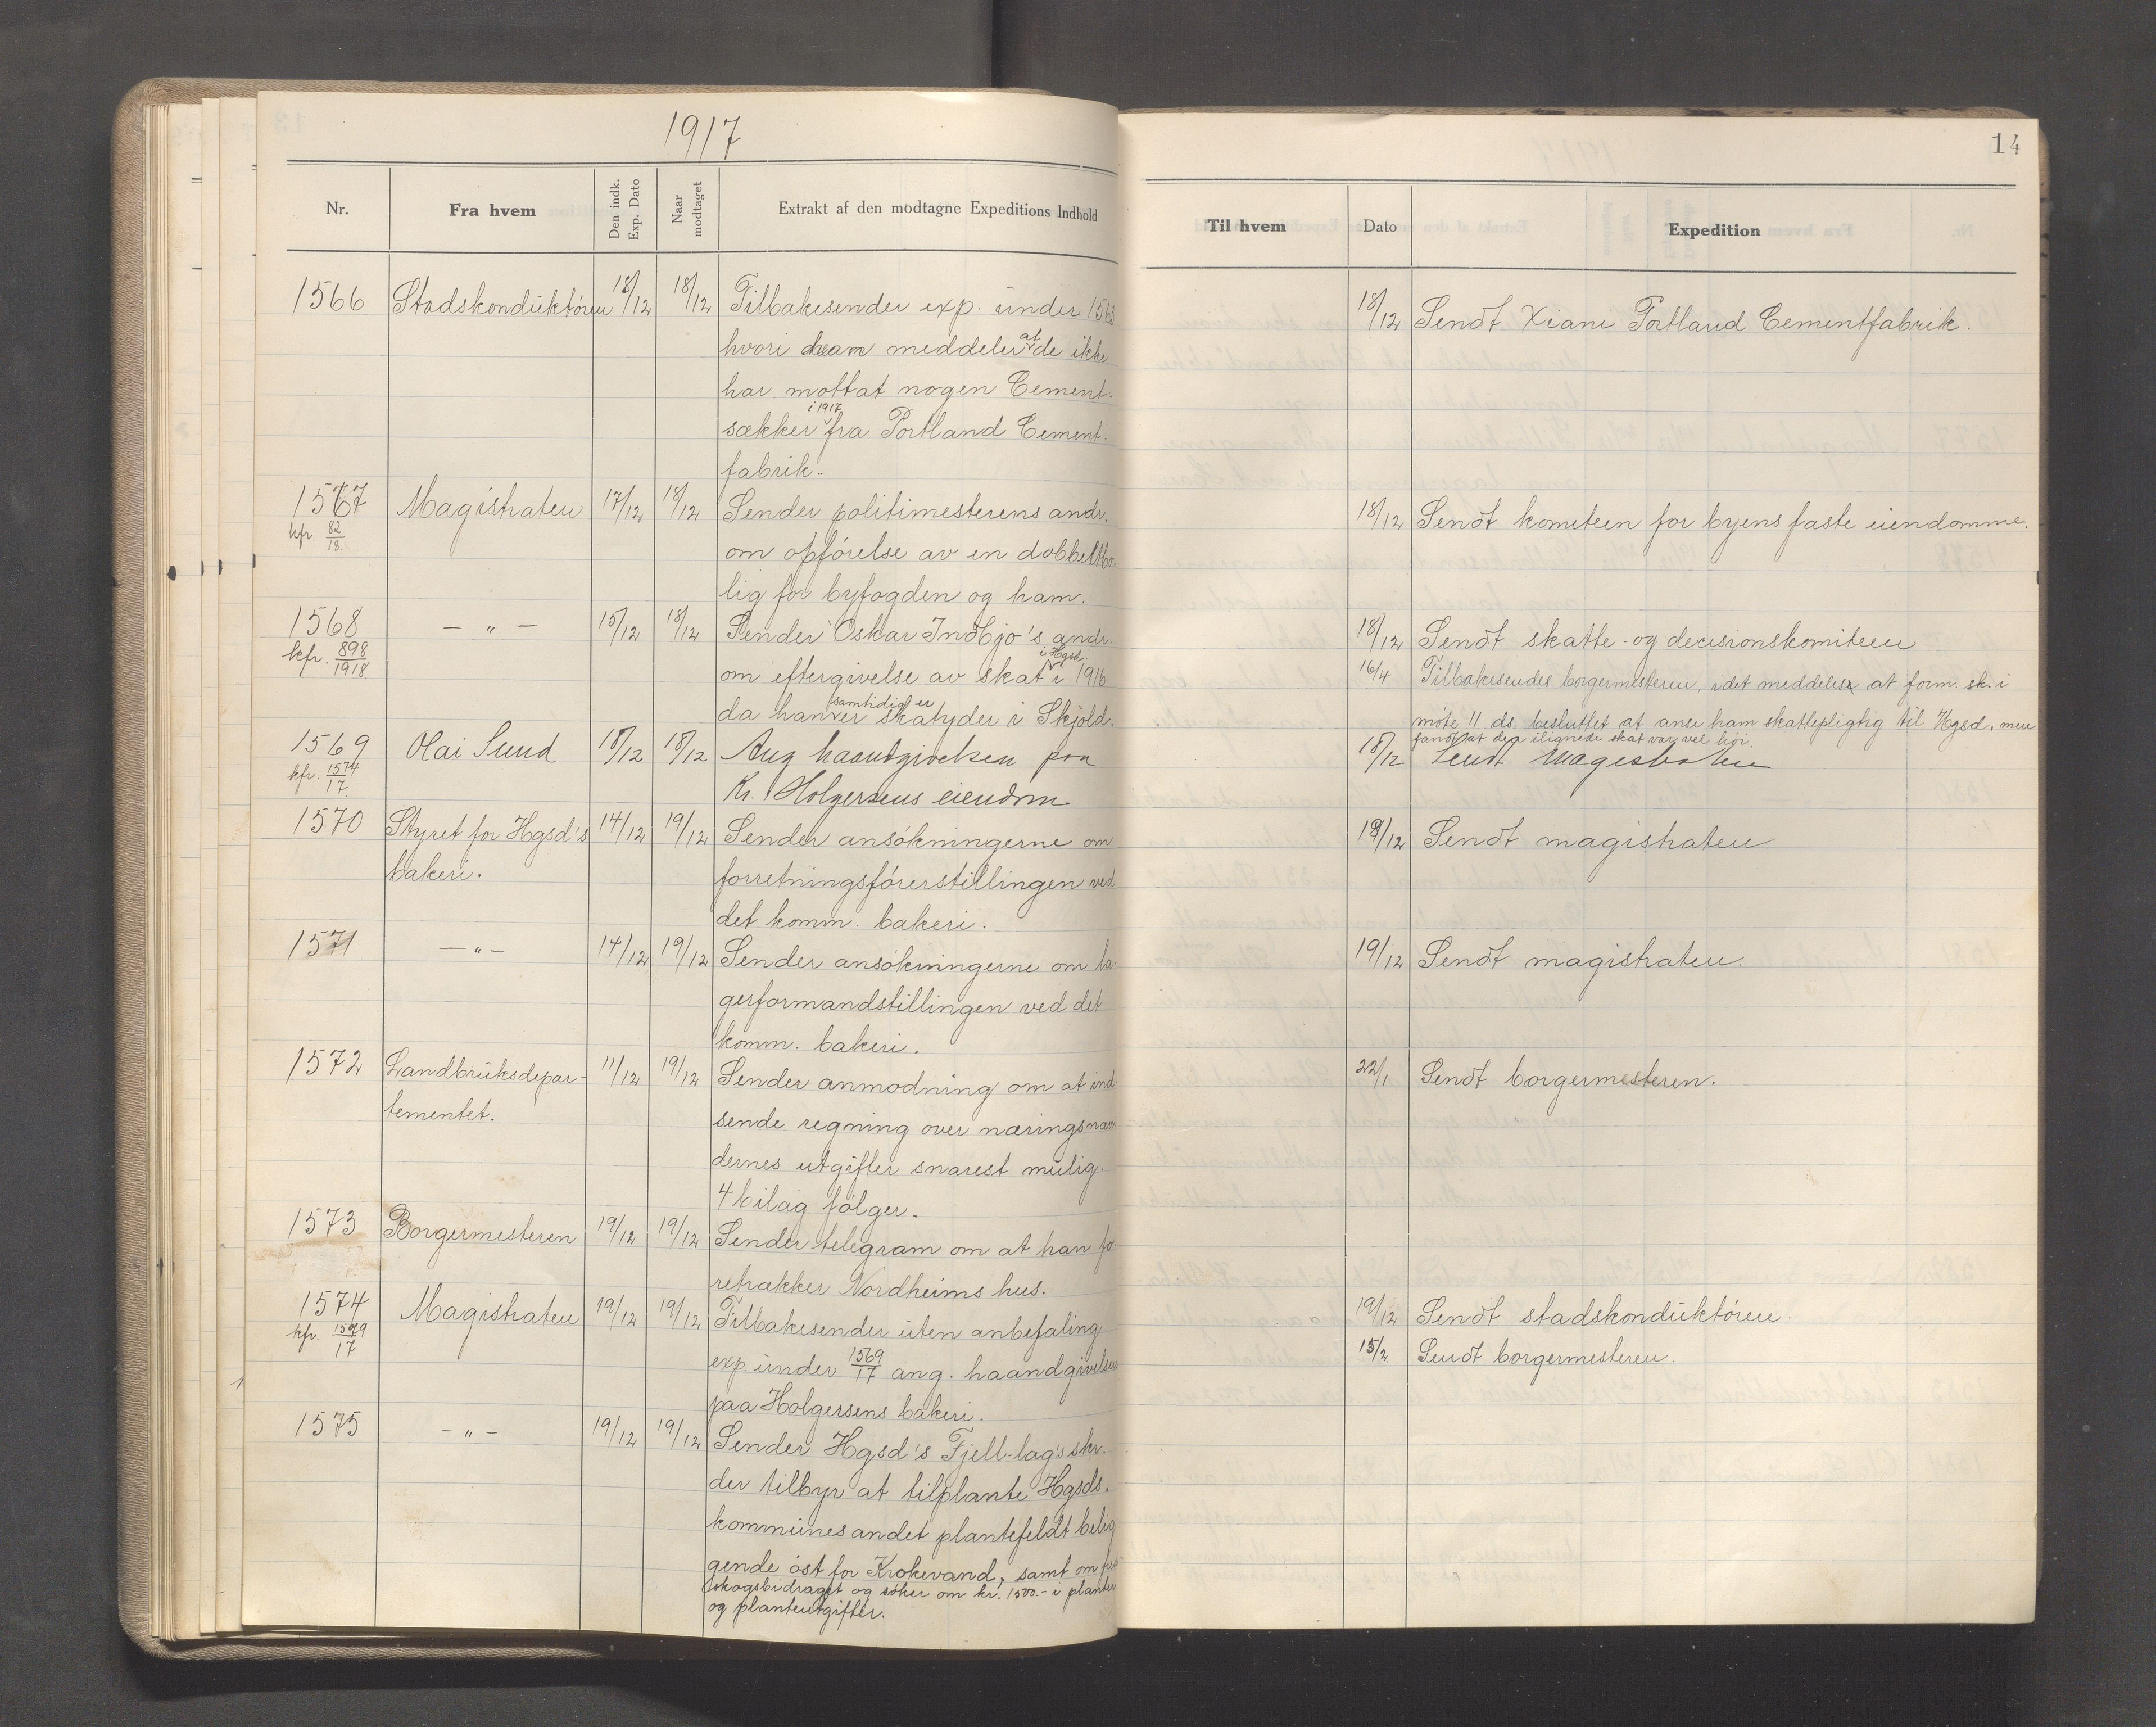 1917
Nr.
Fra hvem
Den indk. Exp. Dato
Naar modtaget
Extrakt af den modtagne Expeditions Indhold
1566 Stadskonduktøren 18/12 18/12 Tilbakesender exp. under
hvori meddeler at de ikke
har mottat nogen Cement-
sækker i 1917 fra Portland Cement-
fabrik.
1567 Magistraten 17/12 18/12 Sender politimesterens andr.
kfr. 82/18. om opførelse av en dobbeltbo-
lig for byfogden og ham.
1568 — „ — 15/12 18/12 Sender Oskar Indbjo's andr.
kfr. 898/1918. om eftergivelse av skat i Hgsd. i 1916
da han samtidig er skatyder i Skjold.
1569 Olai Sund 18/12 18/12 Ang haandgivelsen paa
kfr. 1574/17. Kr. Holgersens eiendom
1570 Styret for Hgsd's 14/12 19/12 Sender ansøkningerne om
bakeri. forretningsførerstillingen ved
det komm. bakeri.
1571 — „ — 14/12 19/12 Sender ansøkningerne om la-
gerformandstillingen ved det
komm. bakeri.
1572 Landbruksdepar- 11/12 19/12 Sender anmodning om at ind
tementet. sende regning over næringsnæm
dernes utgifter snarest mulig.
4 bilag følger.
1573 Borgermesteren 19/12 19/12 Sender telegram om at han fo
retrækker Nordheims hus.
1574 Magistraten 19/12 19/12 Tilbakesender uten anbefaling
kfr. exp. under 1569/17 ang. haandgivelsen
paa Holgersens bakeri.
1575 — „ — 19/12 19/12 Sender Hgsd's Fjell-lag's skr.
der tilbyr at tilplante Hgsds.
kommunes andet plantefeldt belig
gende øst for Krokevand, samt om
skogsbidraget og søker om kr. 1500.- i planter
og planteutgifter.
14
Til hvem
Dato
Expedition
18/12 Sendt Xiani Portland Cementfabrik.
18/12 Sendt komiteen for byens faste eiendomme.
18/12 Sendt skatte- og decisionskomiteen
16/4 Tilbakesendes borgermesteren, idet meddeles at form. sk. i
møte 11 ds. besluttet at anse ham skattepligtig til Hgsd, men
fandt at den ilignede skat var vel høi.
18/12 Sendt Magistraten
19/12 Sendt magistraten
19/12 Sendt magistraten.
22/1 Sendt borgermesteren.
19/12 Sendt stadskonduktøren.
15/2 Sendt borgermesteren.